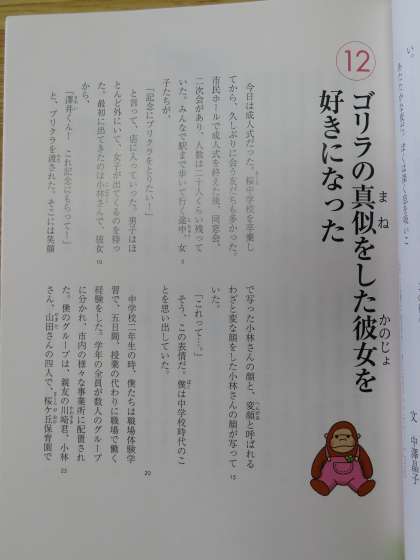 12
ゴリラの真似をした彼女を
好きになった
まね
かのじょ
文 中澤晶子
今日は成人式だった。桜中学校を卒業し
てから、久しぶりに会う友だちも多かった。
市民ホールで成人式を終えた後、同窓会、
二次会があり、人数は二十人くらい残って
いた。みんなで駅まで歩いて行く途中、女
5
子たちが、
「記念にプリクラをとりたい！」
と言って、店に入っていった。男子はほ
とんど外にいて、女子が出てくるのを待っ
た。最初に出てきたのは小林さんで、彼女
10
から、
「澤井くん！ これ記念にもらって！」
と、プリクラを渡された。そこには笑顔
で写った小林さんの顔と、変顔と呼ばれる
わざと変な顔をした小林さんの顔が写って
15
いた。
「これって…。」
そう、この表情だ。僕は中学校時代のこ
とを思い出していた。
中学校二年生の時、僕たちは職場体験学
20
習で、五日間、授業の代わりに職場で働く
経験をした。学年の全員が数人のグループ
に分かれ、市内の様々な事業所に配置され
た。僕のグループは、親友の川崎君、小林
さん、山田さんの四人で、桜ケ丘保育園で
25